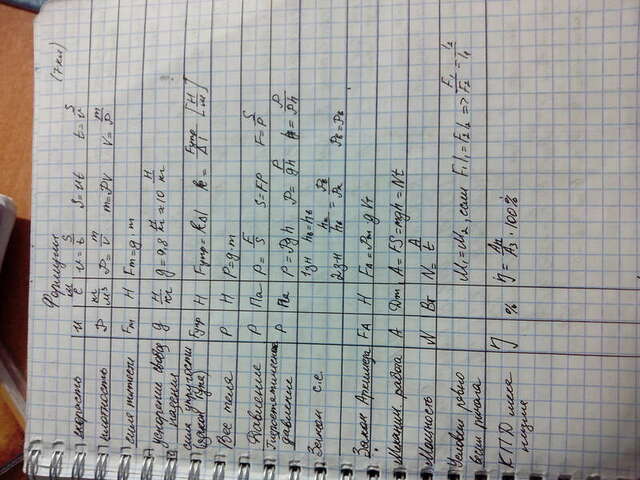 Формулы (7 кл)
скорость u м/с u = S/t S = ut t = S/u
плотность ρ кг/м³ ρ = m/V m = ρV V = m/ρ
сила тяжести Fт Н Fт = g·m
ускорение свобод. падения g Н/кг g = 9,8 Н/кг ≈ 10 Н/кг
сила упругости (закон Гука) Fупр Н Fупр = kΔl k = Fупр/Δl [Н/м]
Вес тела P Н P = g·m
Давление P Па P = F/S S = FP F = P/S
Гидростатическое давление P Па P = ρgh ρ = P/gh h = P/ρh
Закон с.с. 1) gH hа = hв hа/hв = ρв/ρа
2) gH Pв = Pв
Закон Архимеда FА Н Fа = ρж g Vт
Механич работа A Дж A = FS = mgh = Nt
Мощность N Вт N = A/t
Условие равновесия рычага M₁ = M₂, если F₁l₁ = F₂l₂ => F₁/F₂ = l₂/l₁
КПД механизма η % η = Aп/Aз · 100%